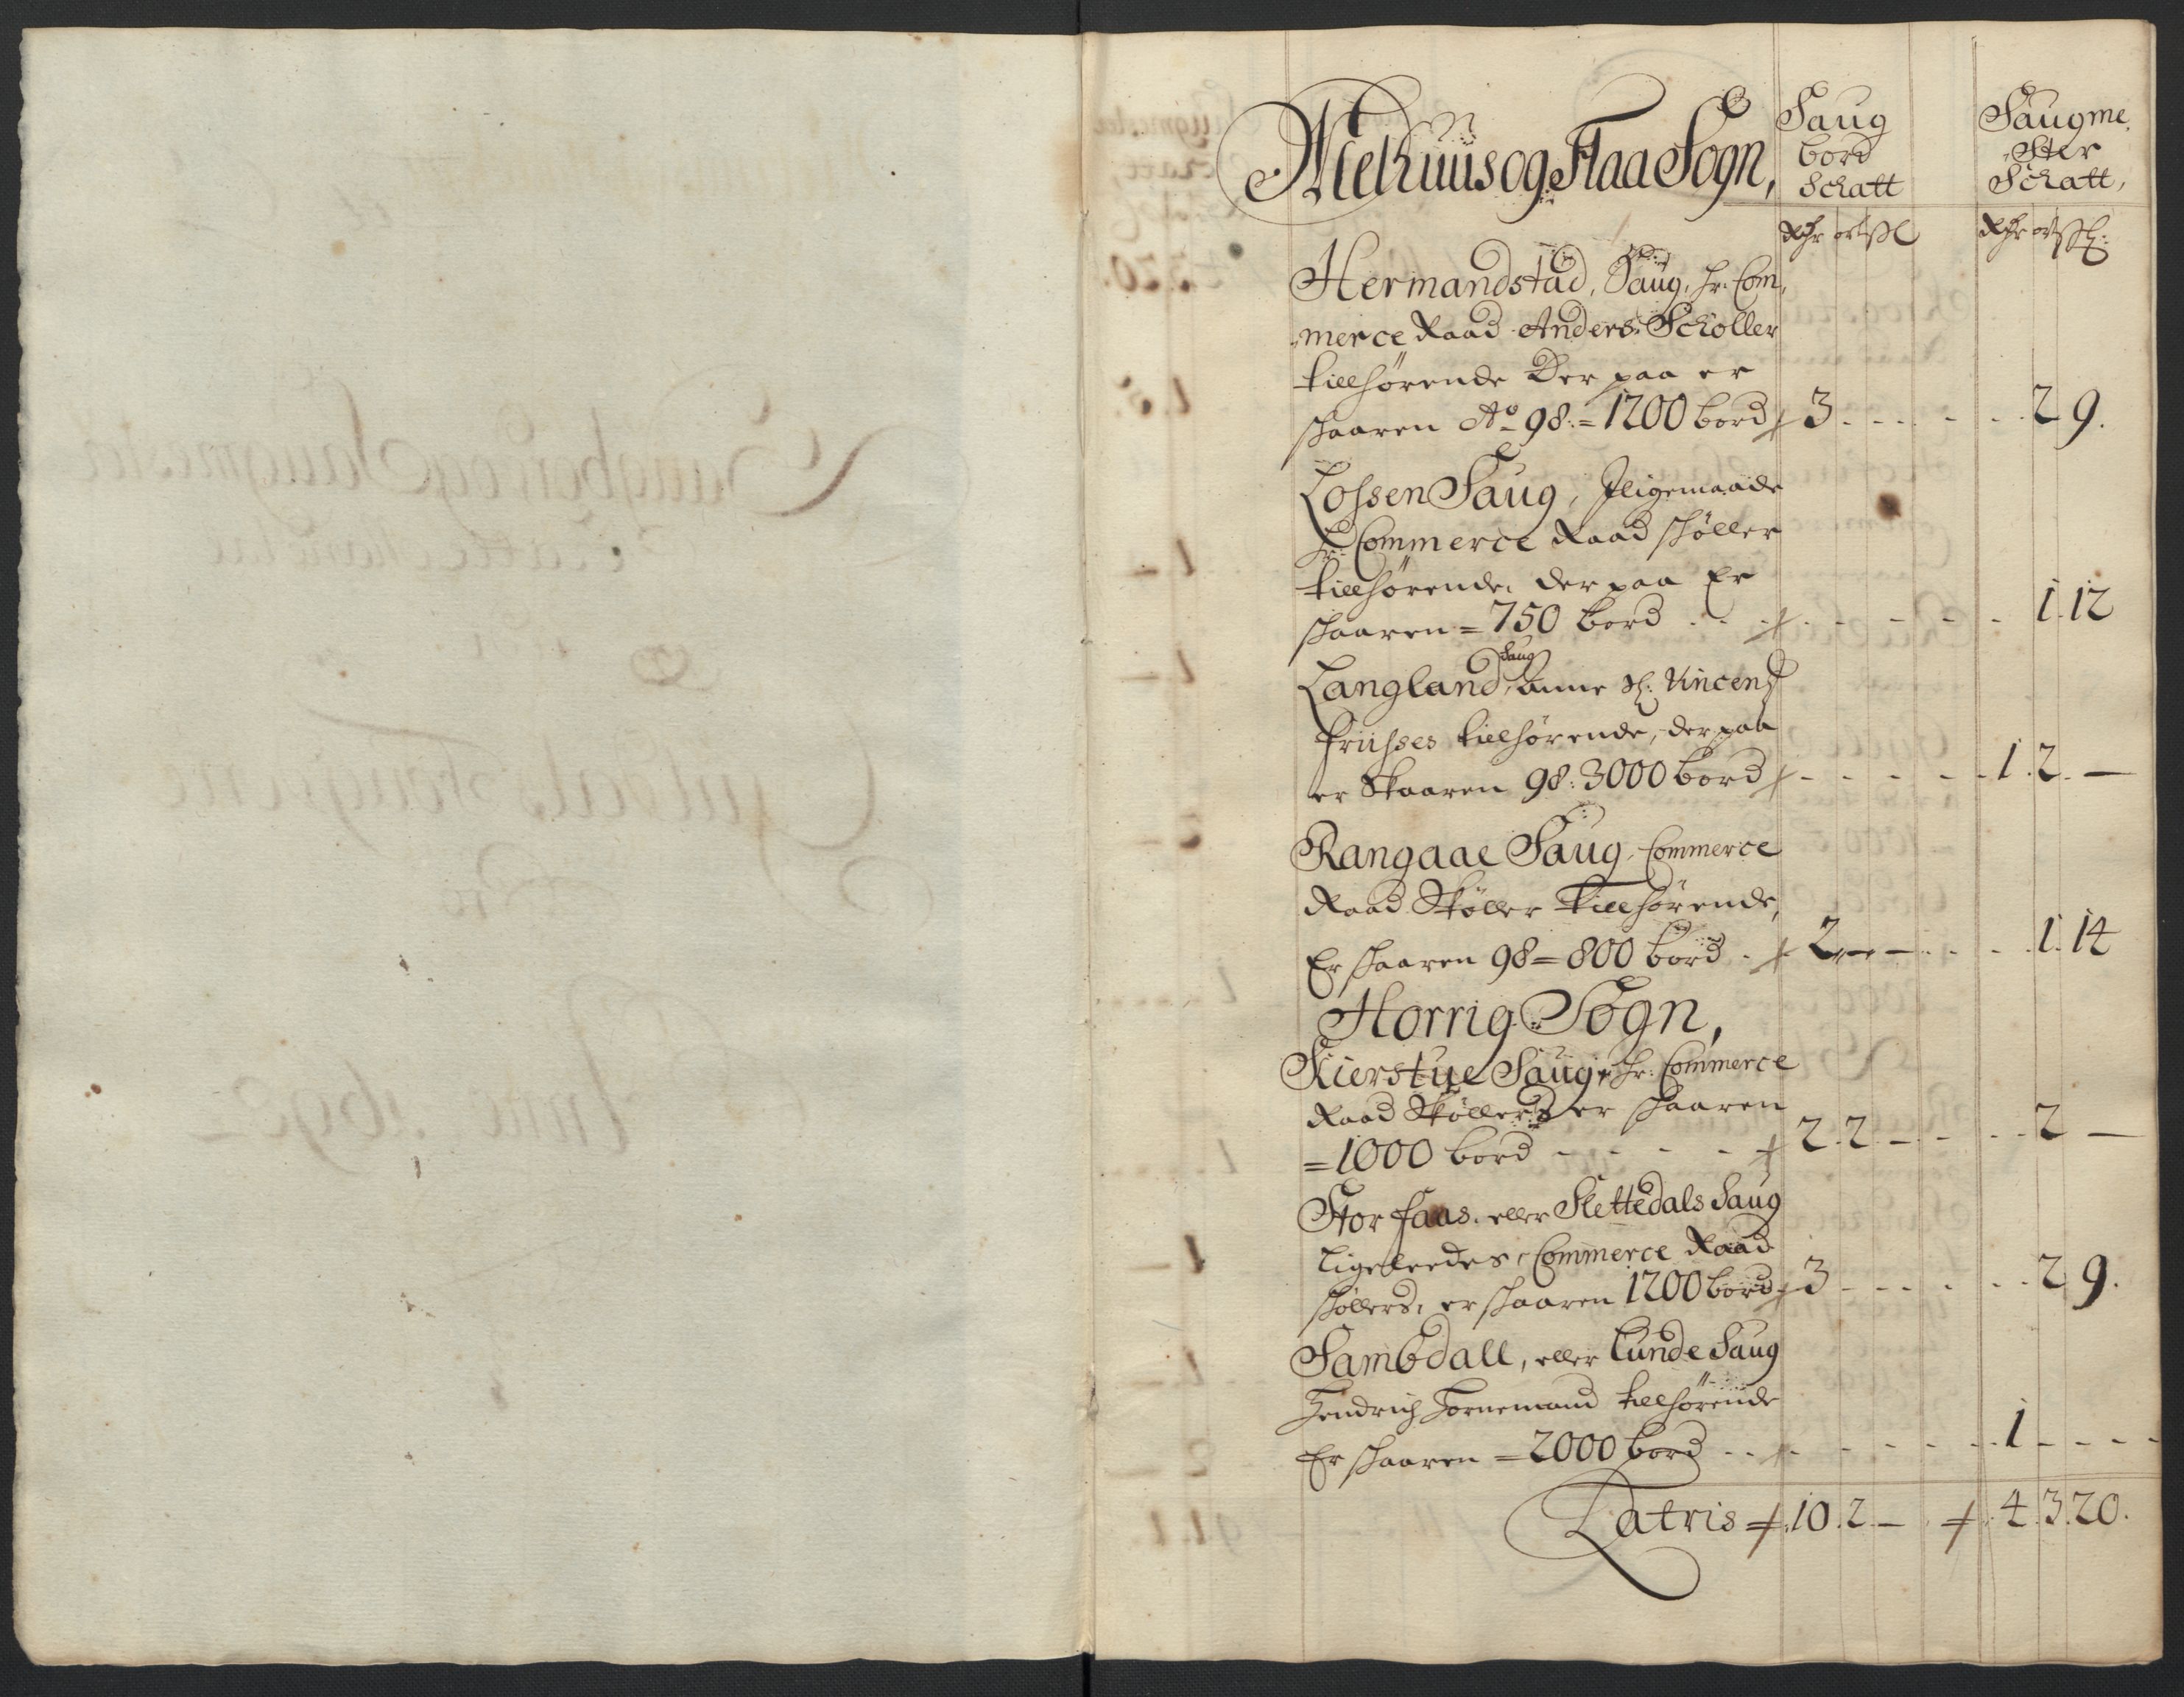 Melhuus og Flaa Sogn,
Saug bord Schatt
Saugme„ ster Schatt,
Rdr ort ſſl
Rdr ort ſſl:
Hermandstad, Saug, Hr: Com„
„merce Raad Anders Schöller
tillhörende Der paa er
skaaren Ao 98:= 1200 bord 3 - - - - - 2 9.
Lossen Saug, Iligemaade
Hr: Commerce Raad Skøller
tillhörende, der paa Er
skaaren = 750 bord - - - - - 1. 12
Langland Saug, Anne Sl: Vincenß
Friisses tillhörende, der paa
er Skaaren 98: 3000 bord - - - - 1. 2. —
Rangaae Saug, Commerce
Raad Skøller tillhörende,
Er skaaren 98 = 800 bord - 2 — — - - 1. 14
Horrig Sogn,
Kierstue Saug, Hr: Commerce
Raad Skøllers er skaaren
= 1000 bord - - - - 2. 2 — - - - 2 —
Stor Faas. eller Slettedals Saug
Ligeleedes, Commerce Raad
skøllers, er skaaren 1200 bord 3 - - - - - 2 9.
Sambdall, eller Lunde Saug
Hendrich Hornemand tillhörende
Er skaaren = 2000 bord - - - - - - 1 - - - -
Latris 10. 2. — 4. 3. 20.